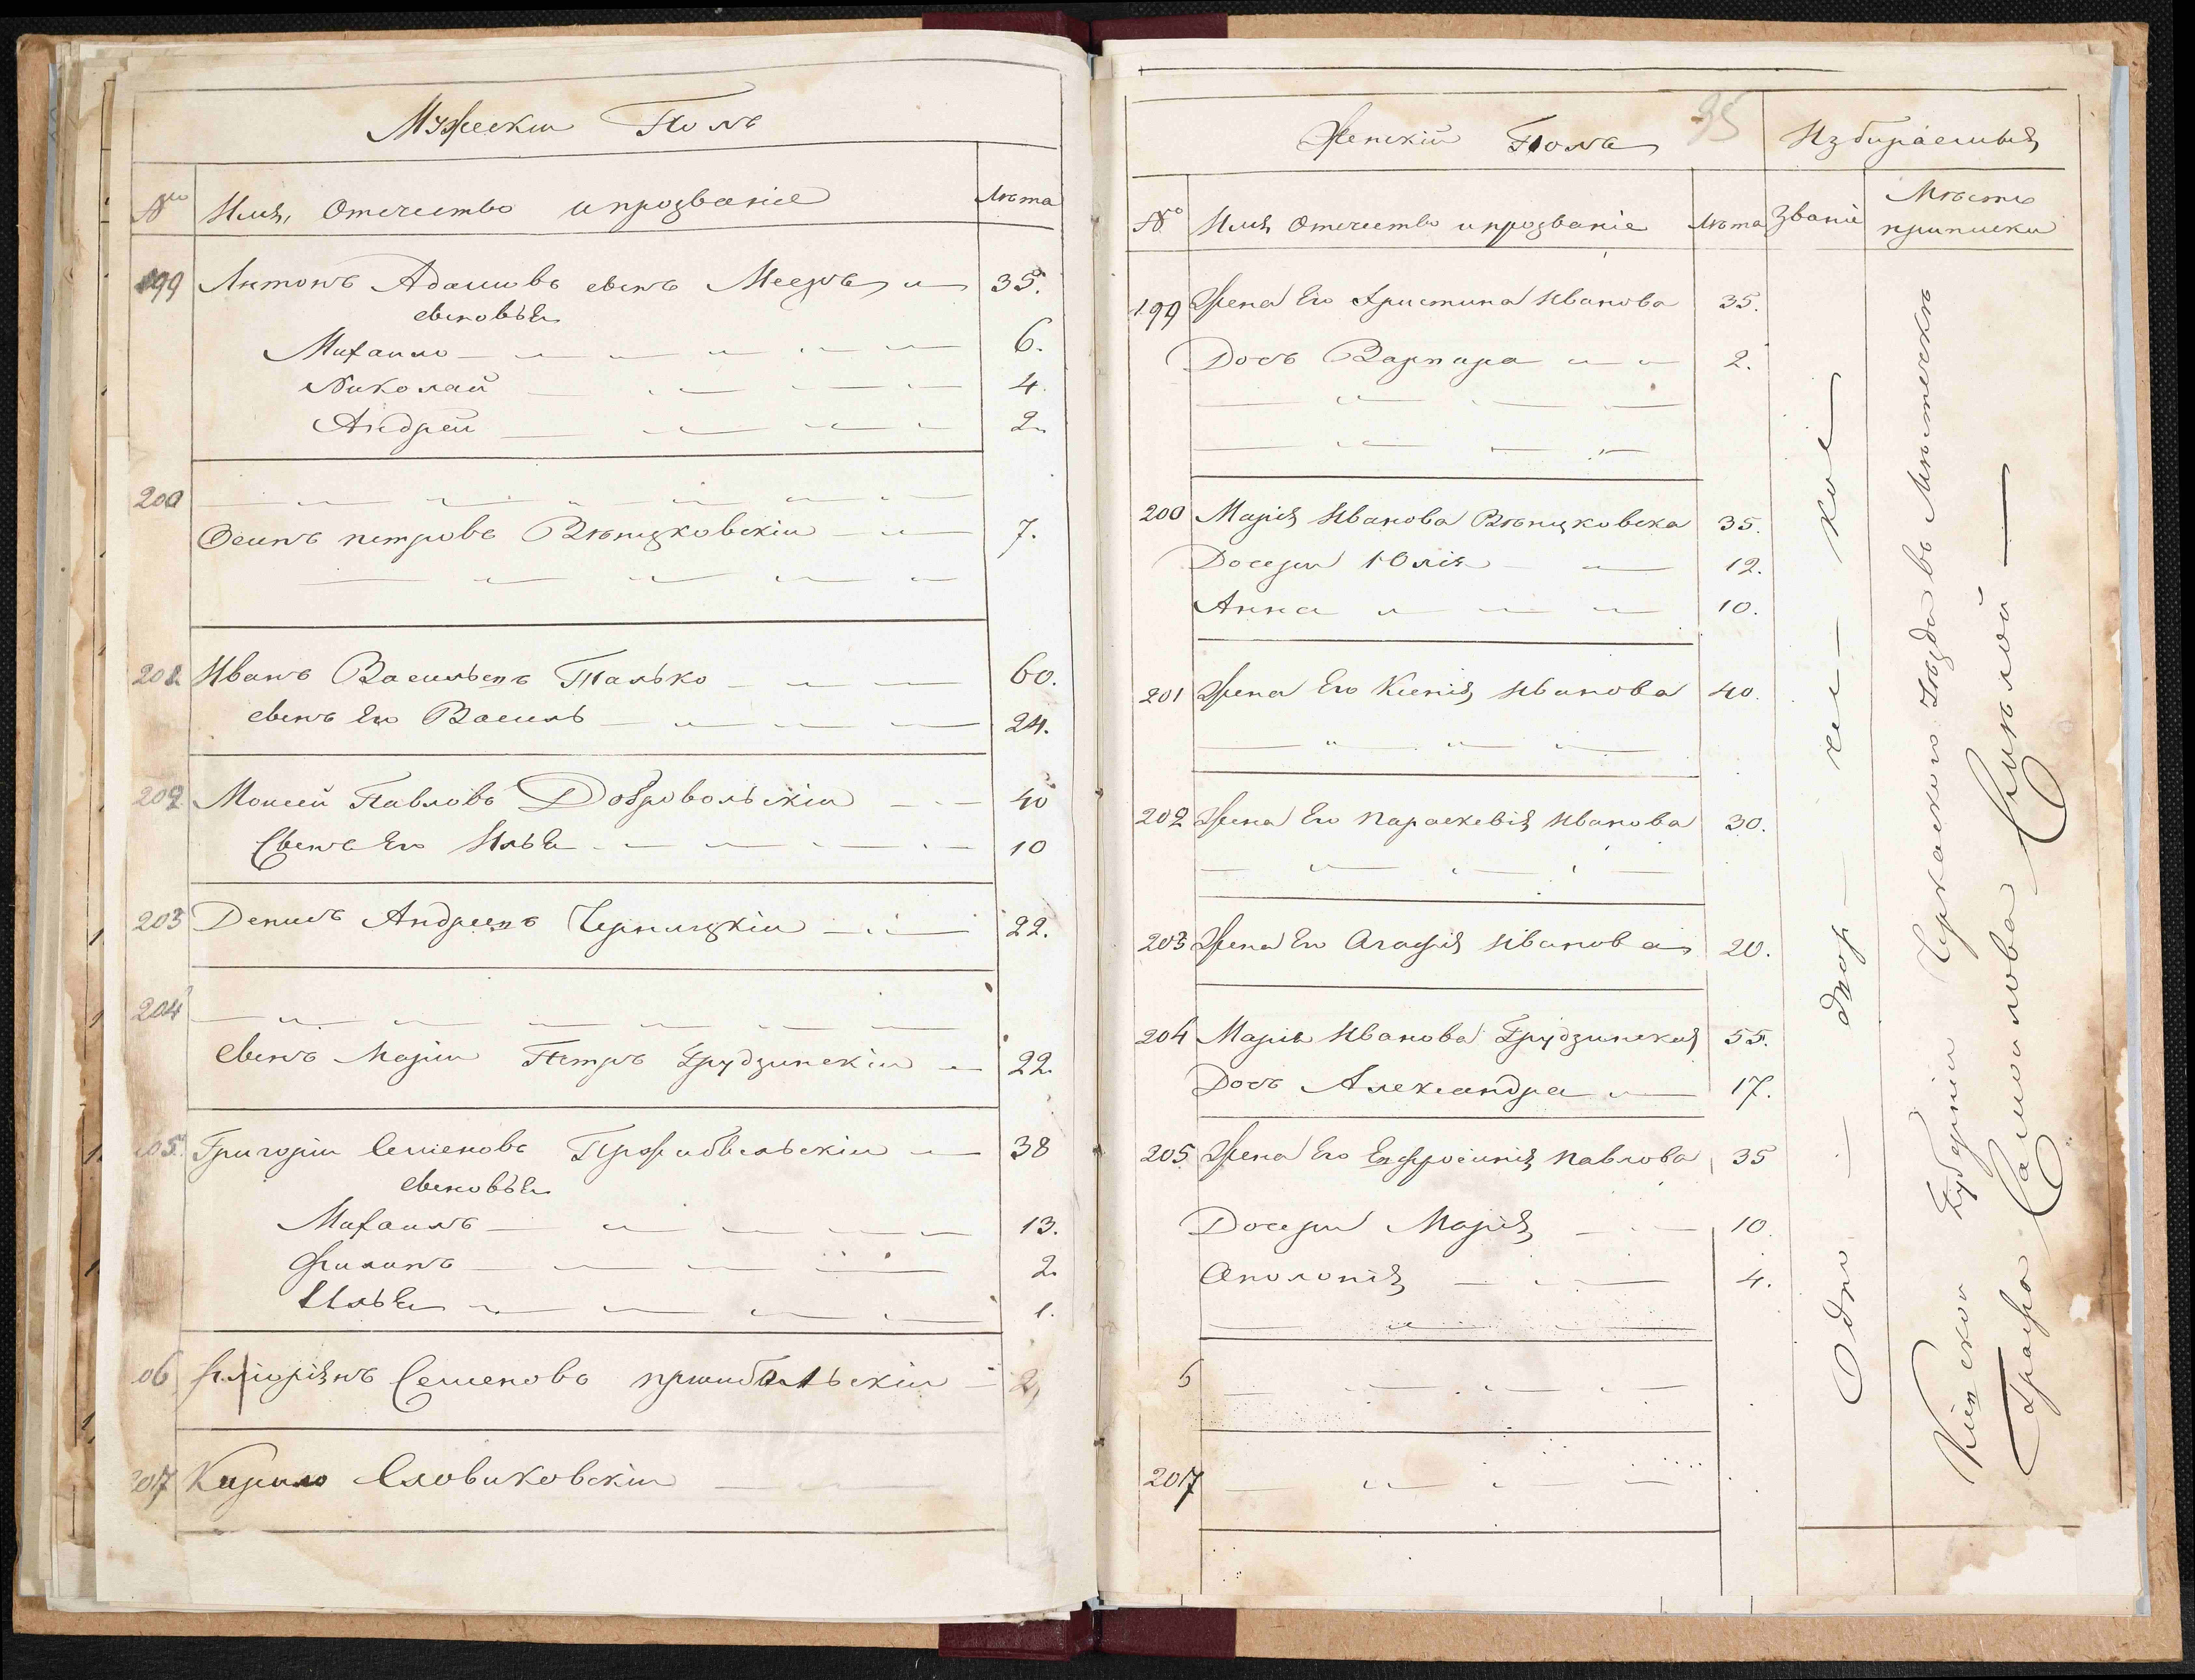 Мужескии Полъ
№ Имя, Отечество и прозваніе Лѣта
199 Антонъ Адамовъ сынъ 35.
сыновья
Михаило 6.
Николай 4.
Андрей 2.
200
Осипъ петровъ Вѣнцковскіи 7.
201 Иванъ Васильевъ Талько 60.
сынъ Его Василь 24.
202 Моисей Павловъ Добровольскіи 40
Сынъ Его Илья 10
203 Денисъ Андреевъ 22.
204
сынъ Маріи Петръ Грудзинскіи 22.
205 Григоріи Семеновъ 38
сыновья
Михаилъ 13.
Филипъ 2.
Илья 1.
06 Флоріянъ Семеновъ
207 Кирило Словиковскіи
35
Женскій Полъ Избираемыя
№ Имя Отечество и прозваніе Лѣта Званіе Мѣсто
приписки
199 Жена Его Христина Иванова 35.
Дочь Варвара 2.
200 Марія Иванова Вѣнцковска 35.
Дочери Юлія 12.
Анна 10.
201 Жена Его Ксенія Иванова 40.
202 Жена Его Параскевія Иванова 30.
203 Жена Его Агафія Иванова 20.
204 Марія Иванова Грудзинская 55.
Дочь Александра 17.
205 Жена Его Евфросинія Павлова 35
Дочери Марія 10.
Аполонія 4.
6
207
Одно двор че ское
Кіевской Губерніи Черкаского Уѣзда въ Мѣстечкѣ
Графа Самоилова Смѣлой